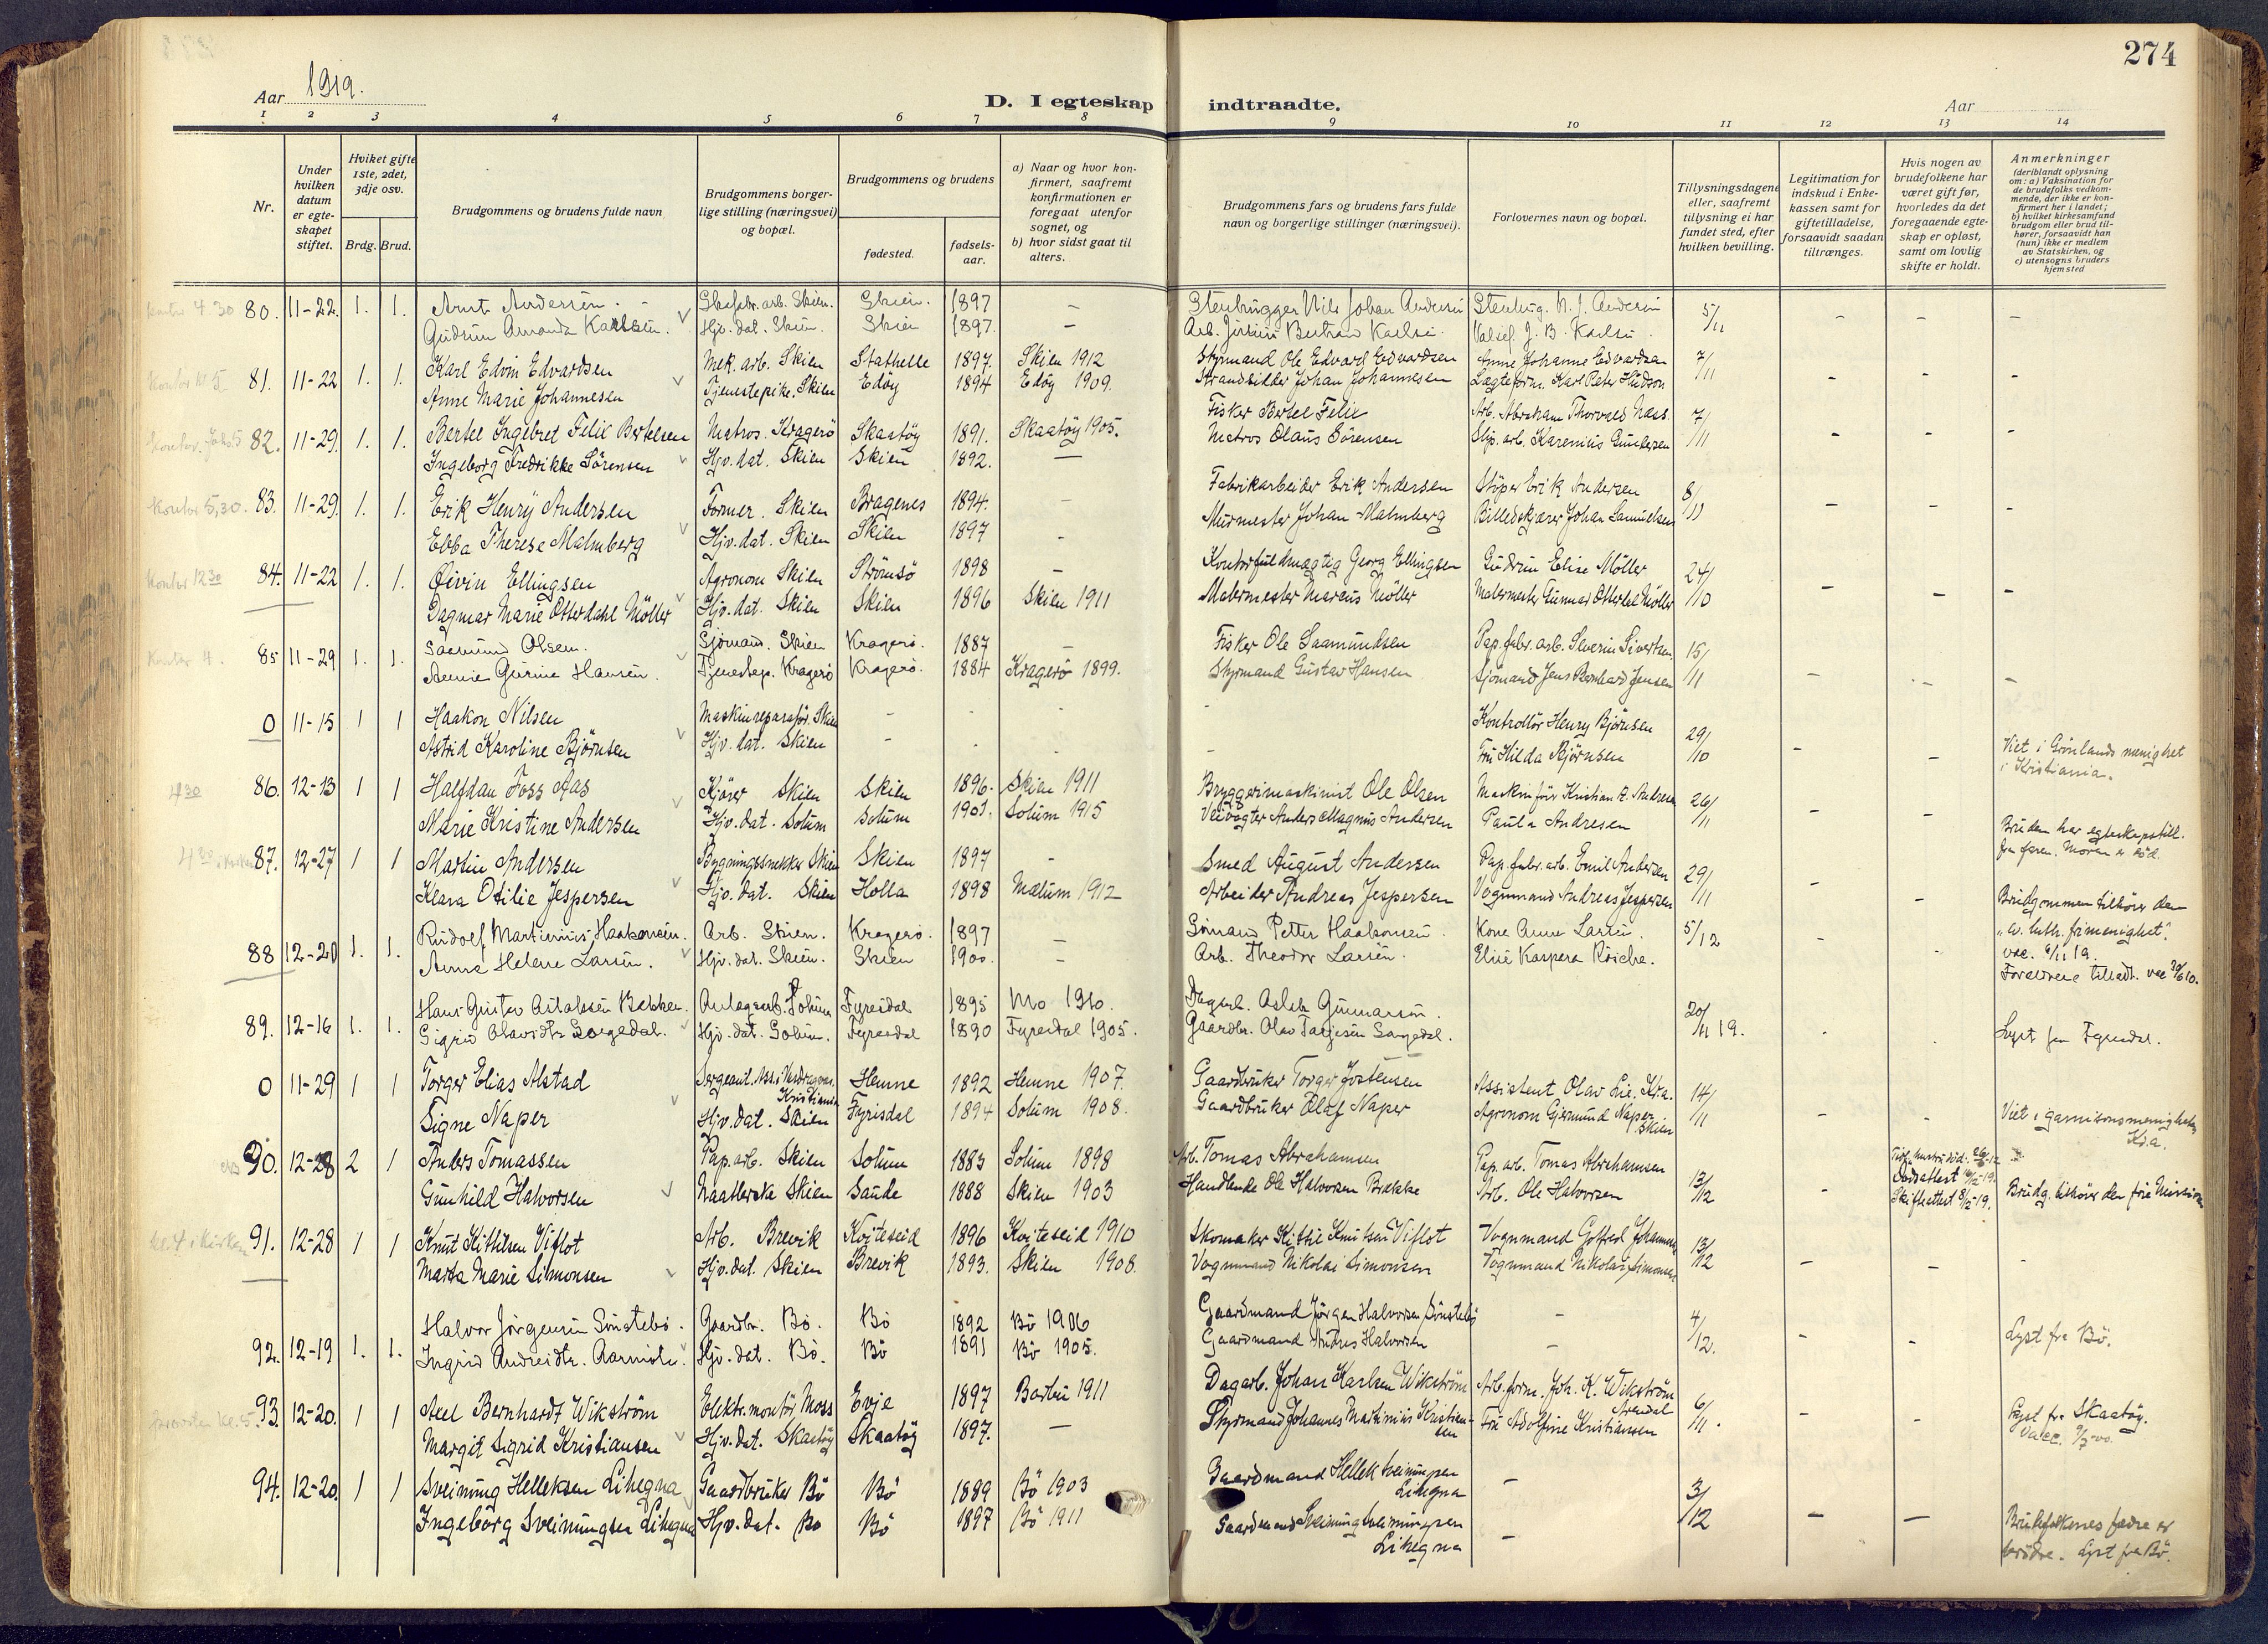 274
Aar 1919.
D. I egteskap indtraadte.
Aar
1 2 3 4 5 6 7 8 9 10 11 12 13 14
Nr.
Under hvilken datum er egte-skapet stiftet.
Hviket gifte 1ste, 2det, 3dje osv.
Brdg. Brud.
Brudgommens og brudens fulde navn
Brudgommens borger-lige stilling (næringsvei) og bopæl.
Brudgommens og brudens
fødested.
fødsels-aar.
a) Naar og hvor kon-firmert, saafremt konfirmationen er foregaat utenfor sognet, og
b) hvor sidst gaat til alters.
Brudgommens fars og brudens fars fulde navn og borgerlige stillinger (næringsvei).
Forlovernes navn og bopæl.
Tillysningsdagene eller, saafremt tillysning ei har fundet sted, efter hvilken bevilling.
Legitimation for indskud i Enke-kassen samt for giftetilladelse, forsaavidt saadan tiltrænges.
Hvis nogen av brudefolkene har været gift før, hvorledes da det foregaaende egte-skap er opløst, samt om lovlig skifte er holdt.
Anmerkninger (deriblandt oplysning om: a) Vaksination for de brudefolks vedkom-mende, der ikke er kon-firmert her i landet; b) hvilket kirkesamfund brudgom eller brud til-hører, forsaavidt han (hun) ikke er medlem av Statskirken, og c) utensogns bruders hjemsted
kontor 4.30 80. 11-22. 1. 1. Arnt Andersen. arb. Skien. Skien. 1897 — Stenhugger Nils Johan Andersen Stenhug. N. J. Andersen 5/11 - - -
Gudrun Amanda Karlsen. Hjv. dat. Skien. Skien 1897. — Arb. Bertran Karlsen. J. B. Karlsen.
Kontor kl. 5 81. 11-22 1. 1. Karl Edvin Edvardsen Mek. arb. Skien Stathelle 1897. Skien 1912 Styrmand Ole Edvard Edvardsen Anne Johanne Edvardsen 7/11 - - -
Anne Marie Johannesen Tjenestepike. Skien Edøy 1894 Edöy 1909. Strandsidder Johan Johannesen Lægteform. Karl Peter
82. 11-29. 1. 1. Bertel Ingebret Felix Bertelsen Matros. Kragerö Skaatöy 1891. Skaatöy 1905. Fisker Bertel Felix Arb. Abraham Thorvald Næss. 7/11 - - -
Ingeborg Fredrikke Sörensen Hjv. dat. Skien Skien 1892. — Matros Olaus Sörensen Slip. arb. Karenius Gundersen
Kontor 5,30. 83. 11-29. 1. 1. Erik Henry Andersen Former. Skien Bragenes 1894. — Fabrikarbeider Erik Andersen Stöper Erik Andersen 8/11 - - -
Ebba Therese Malmberg Hjv. dat. Skien Skien 1897 - Murmester Johan Malmberg Billedskjærer Johan Samuelsen
Kontor 12 30 84. 11-22 1. 1. Öivin Ellingsen Agronom Skien Strömsö 1898 — Kontorfuldmægtig Georg Ellingsen Gudrun Elise Möller 24/10 - - -
Dagmar Marie Otterdahl Möller Hjv. dat. Skien Skien 1896 Skien 1911 Malermester Marcus Möller Malermester Gunnar Otterdal Möller
Kontor 4. 85 11-29 1. 1. Saamund Olsen. Sjömand. Skien Kragerö. 1887 — Fisker Ole Saamundsen Pap. fabr. arb. Severin Sivertsen. 15/11 - - -
Annie Gurine Hansen. Tjenestep. Kragerö Kragerö. 1884 Kragerö 1899. Styrmand Gustav Hansen Sjömand Jens Bernhard Jensen
0 11-15 1 1 Haakon Nilsen Maskinreparatör. Skien - - - - Kontrollör Henry Björnsen 29/10 - -
Astrid Karoline Björnsen Hjv. dat. Skien - - - - Fru Hilda Björnsen Viet i Grönlands menighet i Kristiania.
4 30 86. 12-13 1 1 Halfdan Foss Aas Kjörer Skien Skien 1896. Skien 1911 Bryggerimaskinist Ole Olsen Maskinförer Kristian A. Andresen 26/11 - -
Marie Kristine Andersen Hjv. dat. Solum Solum 1901. Solum 1915 Veivogter Anders Magnus Andersen Paula Andresen Bruden har egteskapstill. fra faren. Moren er död.
4 30 i kirken 87. 12-27 1 1 Martin Andersen Bygningssnekker Skien Skien 1897 - Smed August Andersen Pap. fabr. arb. Emil Andersen 29/11 - -
Klara Otilie Jespersen Hjv. dat. Skien Holla 1898 Mælum 1912 Arbeider Andreas Jespersen Vognmand Andreas Jespersen Brudgommen tilhörer den "ev. luth. frimenighet". vac. 6/11 19.
88 12-20 1. 1. Rudolf Martinius Haakonsen. Arb. Skien. Kragerö. 1897 — Sömand Petter Haakonsen. Kone Anne Larsen. 5/12 - -
Anna Helene Larsen. Hjv. dat. Skien. Skien 1900 — Arb. Theodor Larsen. Elise Kaspera Röiche. Forældrene tilladt. vac 30/6 10.
89. 12-16 1. 1. Hans Gustav Aslaksen Bakken. Anlegsarb. Solum Fyresdal 1895 Mo 1910. Dagarb. Aslak Gunnarsen. 20/11 19. - -
Sigrid Olavsdtr. Songedal. Hjv. dat. Solum. Fyresdal 1890 Fyresdal 1905. Gaardbr. Olav Tarjesen Songedal. Lyst fra Fyresdal.
0 11-29 1 1 Torger Elias Alstad Sergeant. Kristiania Hemne 1892 Hemne 1907. Gaardbruker Torger Jostensen Assistent Olav Lie. Kr.a. 14/11 - -
Signe Naper Hjv. dat. Skien Fyrisdal 1894 Solum 1908. Gaardbruker Olaf Naper Agronom Gjermund Naper. Skien Viet i garnisonsmenigheten Kr.a.
90. 12-28 2 1 Anders Tomassen Pap. arb. Skien Solum 1883 Solum 1898 Arb. Tomas Abrahamsen Pap. arb. Tomas Abrahamsen 13/12 - Tidl. hustru död. Dödsattest Skifteattest 8/12-19.
Gunhild Halvorsen Skien Saude 1888 Skien 1903 Handlende Ole Halvorsen Brekke Arb. Ole Halvorsen Brudg. tilhörer den frie Mission
kl. 4 i kirken 91. 12-28 1 1 Knut Kittilsen Viflot Arb. Brevik Kviteseid 1896 Kviteseid 1910 Skomaker Kittil Knutsen Viflot Vognmand Gotfred Johannesen 13/12 - - -
Marta Marie Simonsen Hjv. dat. Skien Brevik 1893. Skien 1908. Vognmand Nikolai Simonsen Vognmand Nikolai Simonsen
92. 12-19 1. 1. Halvor Jørgensen Sönstebö. Gaardbr. Bö. Bö 1892 Bö 1906 Gaardmand Jørgen Halvorsen Sönstebö - 4/12. - -
Ingrid Andreidtr. Aarmote. Hjv. dat. Bö. Bö 1891 Bö 1905. Gaardmand Andres Halvorsen - Lyst fra Bö.
93. 12-20. 1 1 Axel Bernhardt Wikström Elektr. montör, Moss Evje 1897 Barbu 1911 Dagarb. Johan Karlsen Wikström Arb. form. Joh. K. Wikström Arendal 6/11. - -
Margit Sigrid Kristiansen Hjv. dat. Skaatöy Skaatöy 1897. — Styrmand Johannes Martinius Kristiansen Fru Adolfine Kristiansen Lyst fra Skaatöy.
94. 12-20. 1 1 Sveinung Helleksen Lihegna Gaardbruker Bö Bö 1889 Bö 1903 Gaardmand Hellek Sveinungsen Lihegna - 3/12 - -
Ingeborg Sveinungsen Lihegna Hjv. dat. Bö Bö 1897 Bö 1911 Gaardmand Sveinung Sveinungsen Lihegna - Brudefolkenes fædre er brödre. Lyst fra Bö.